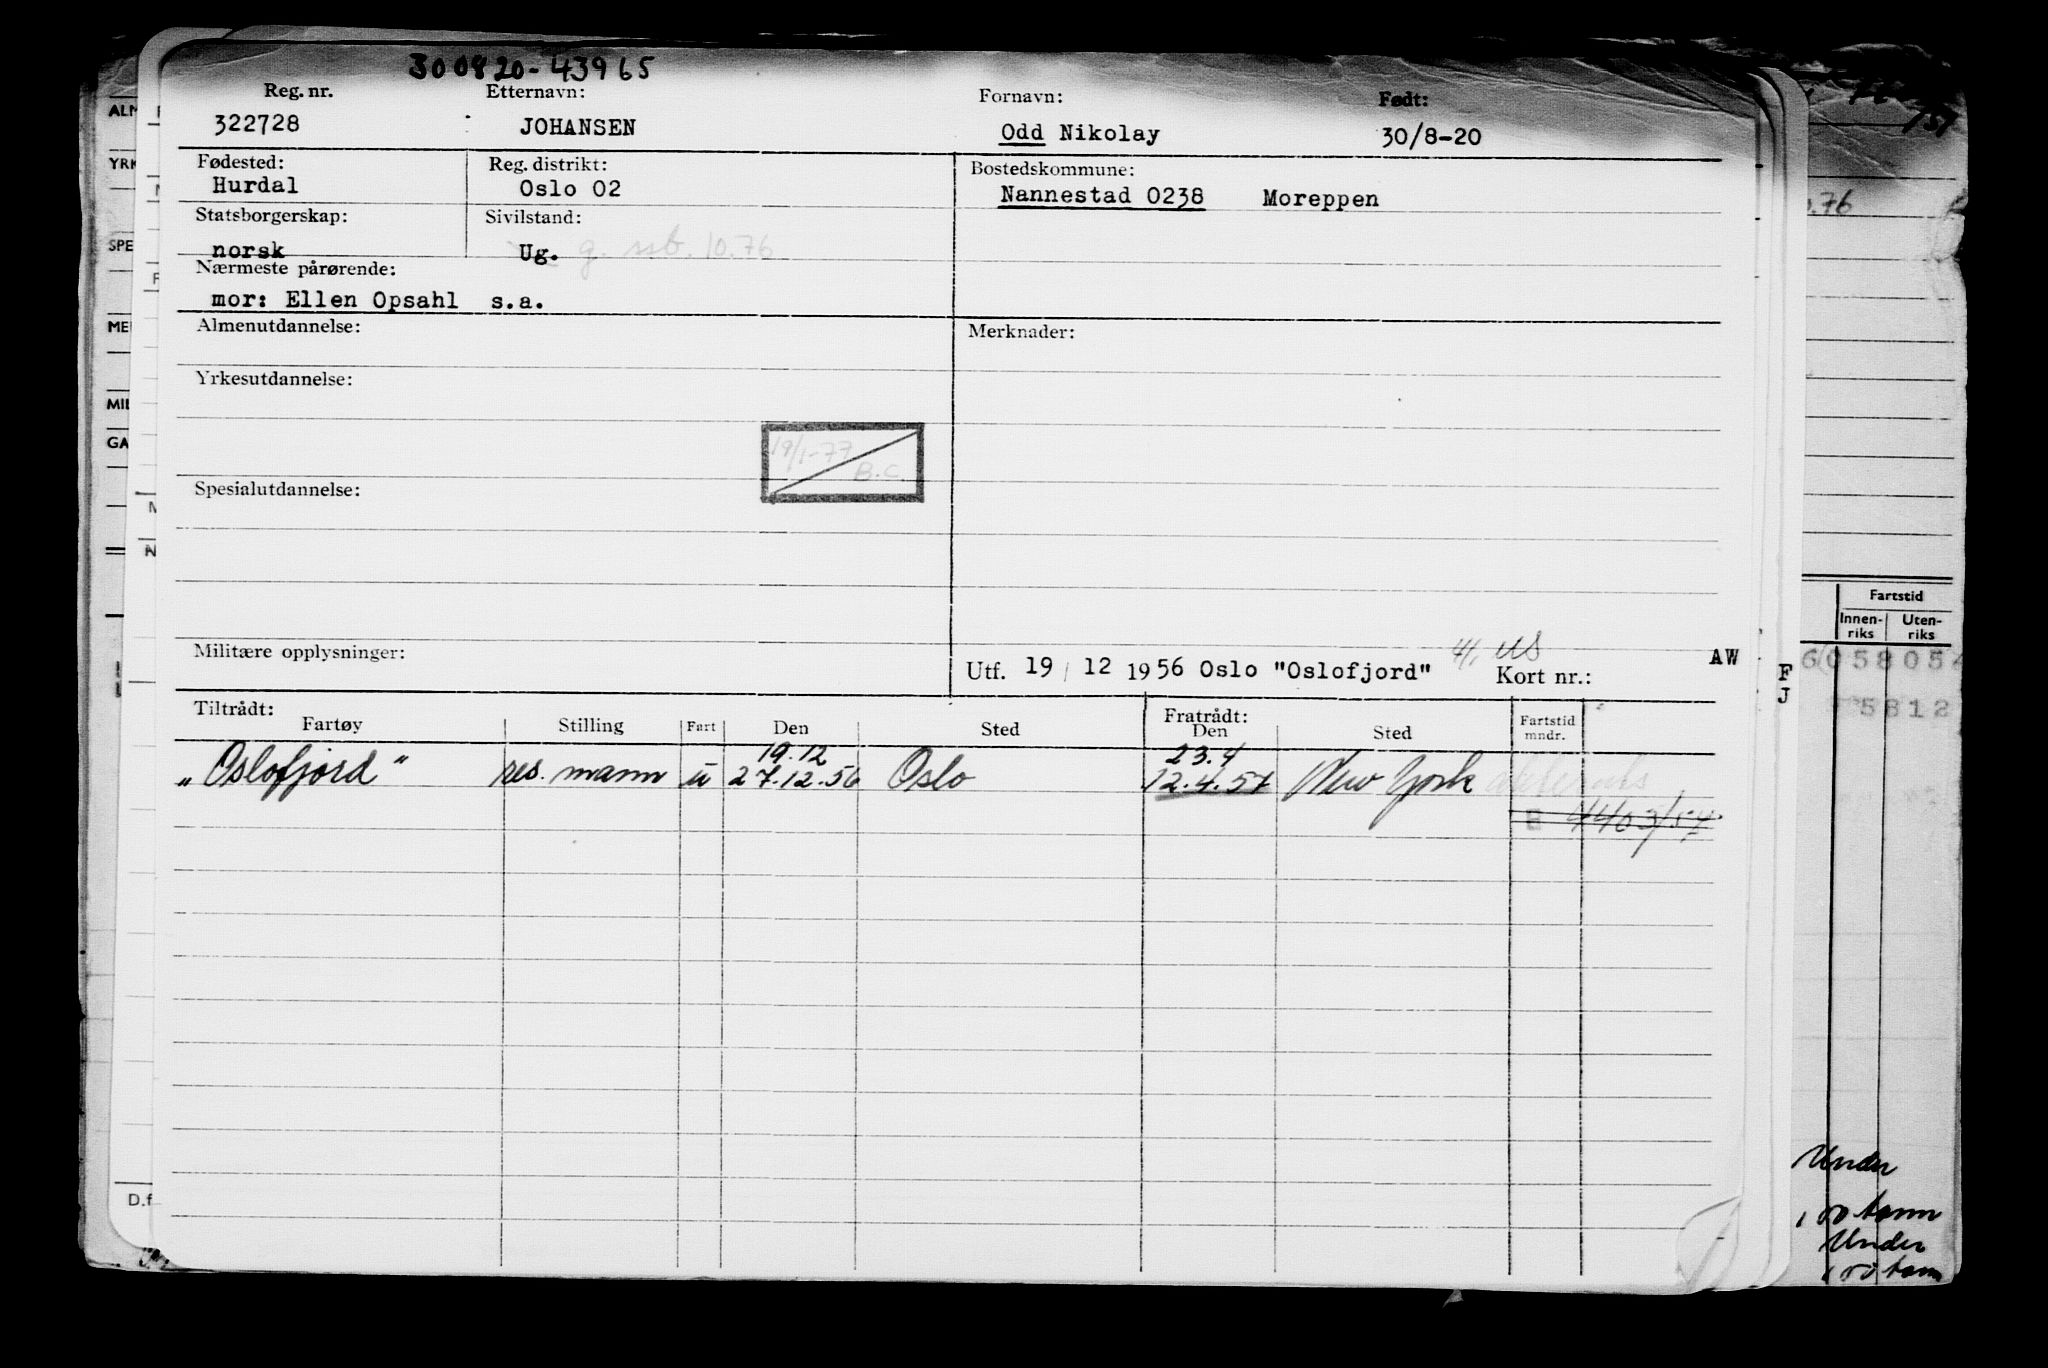 300820-43965
Reg. nr. Etternavn: Fornavn: Født:
322728 JOHANSEN Odd Nikolay 30/8-20
Fødested: Reg. distrikt: Bostedskommune:
Hurdal Oslo 02 Nannestad 0238 Moreppen
Statsborgerskap: Sivilstand:
norsk Ug. g. ssb. 10.76
Nærmeste pårørende:
mor: Ellen Opsahl s.a.
Almenutdannelse: Merknader:
Yrkesutdannelse:
19/1-77
B.C.
Spesialutdannelse:
Militære opplysninger:
Utf. 19/12 1956 Oslo "Oslofjord" Kort nr.: AW
Tiltrådt: Fratrådt:
Fartøy Stilling Fart Den Sted Den Sted Fartstid mndr.
19.12 23.4
"Oslofjord" res. mann u 27.12.56 Oslo 12.4.57 New York
E 4403/57
ALM
YRK
SPE
MIL
GA
D.f
F
J
Fartstid
Innen-
riks
Uten-
riks
58054
5812
Under
100 tonn
Under
100 tonn